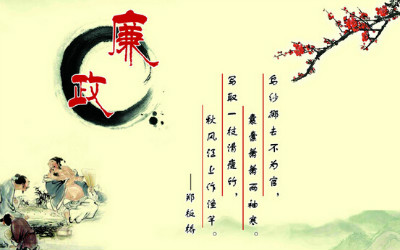 廉政
乌纱掷去不为官，
囊橐萧萧两袖寒。
写取一枝清瘦竹，
秋风江上作渔竿。
——郑板桥